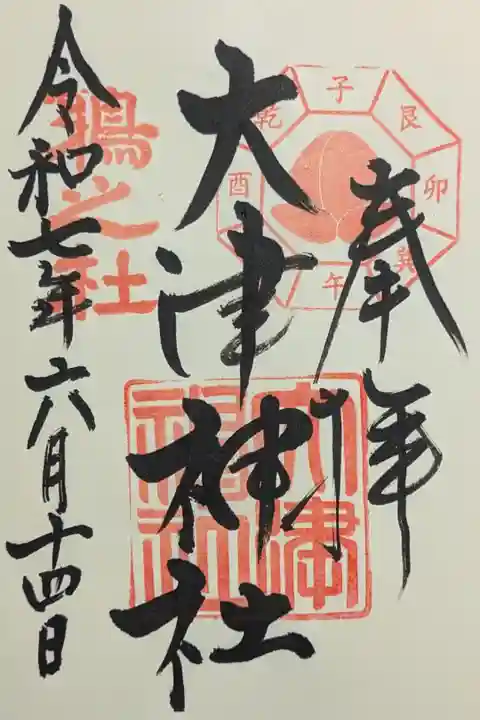 奉拝
大津神社
令和七年六月十四日
子
艮
卯
巽
午
酉
乾
大津
神社
鵲之社